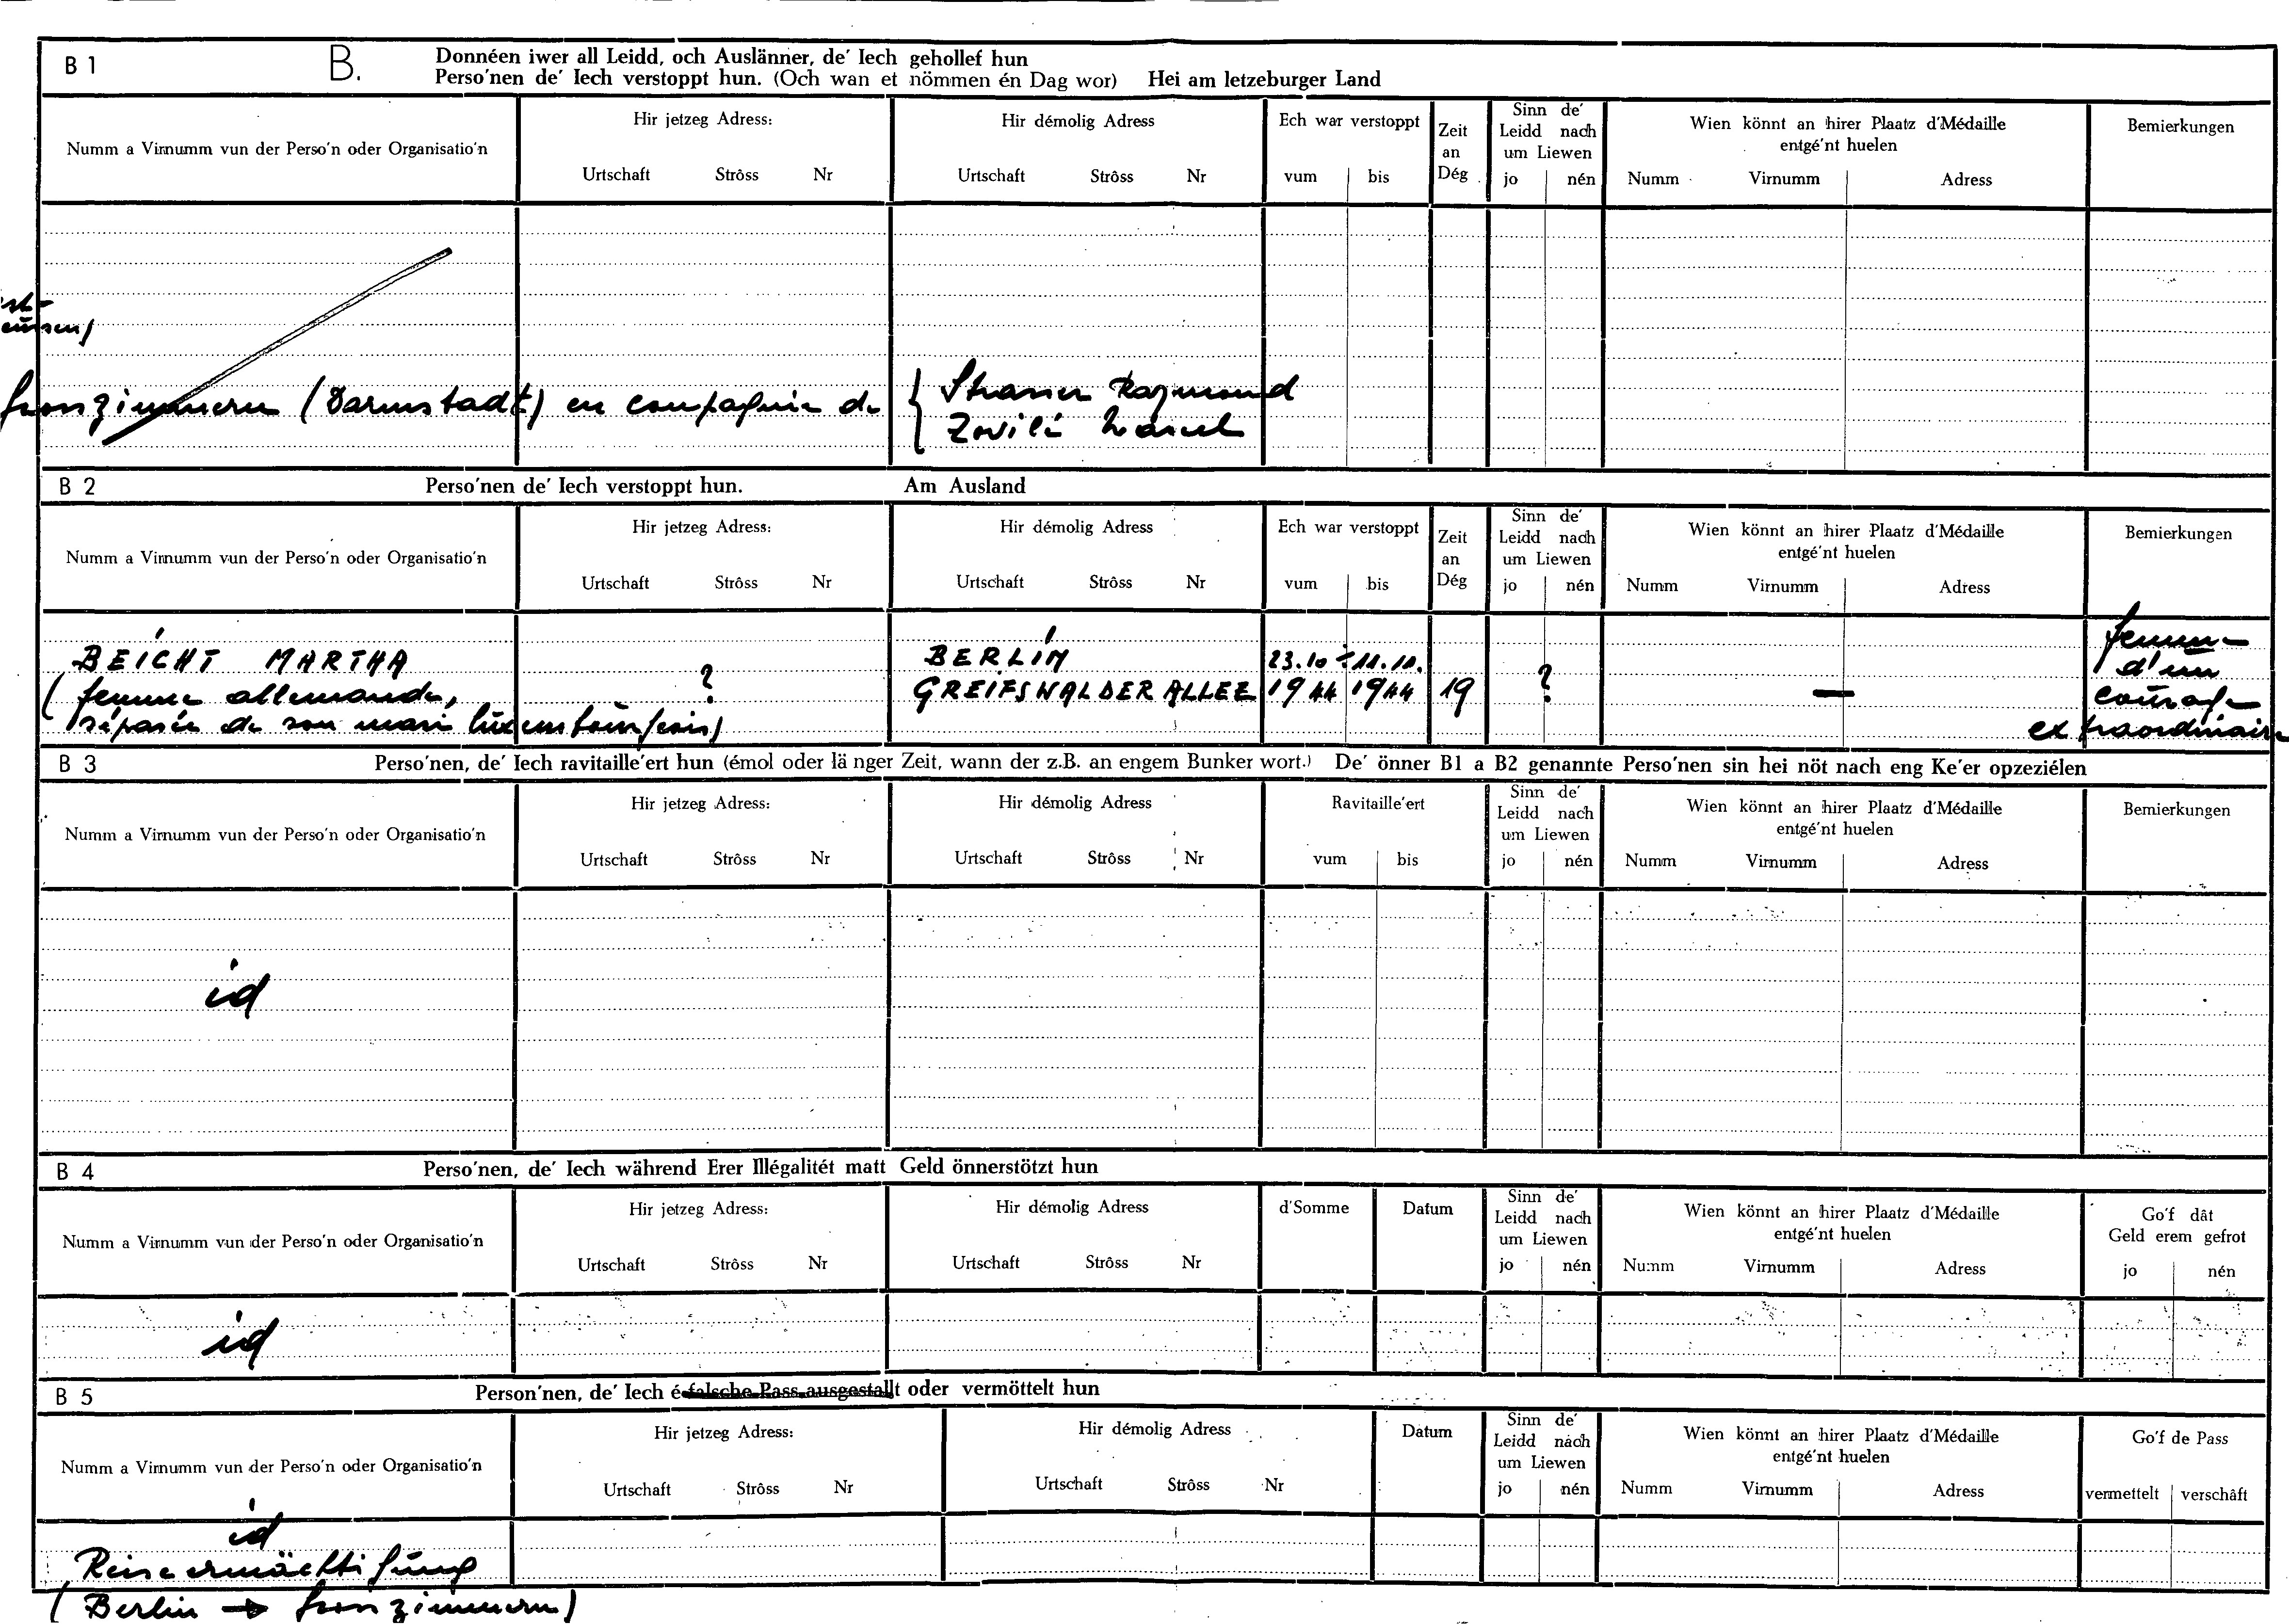 B 1 B. Donnéen iwer all Leidd, och Auslänner, de' Iech gehollef hun
Perso'nen de' Iech verstoppt hun. (Och wan et nömmen én Dag wor) Hei am letzeburger Land
Numm a Virnumm vun der Perso'n oder Organisatio'n
Hir jetzeg Adress:
Urtschaft Strôss Nr
Hir démolig Adress
Urtschaft Strôss Nr
Ech war verstoppt
vum bis
Zeit
an
Dég
Sinn de'
Leidd nach
um Liewen
jo nén
Wien könnt an hirer Plaatz d'Médaille
entgé'nt huelen
Numm Virnumm Adress
Bemierkungen
(Darmstadt) en compagnie de { Raymond
B 2 Perso'nen de' Iech verstoppt hun. Am Ausland
Numm a Virnumm vun der Perso'n oder Organisatio'n
Hir jetzeg Adress:
Urtschaft Strôss Nr
Hir démolig Adress
Urtschaft Strôss Nr
Ech war verstoppt
vum bis
Zeit
an
Dég
Sinn de'
Leidd nach
um Liewen
jo nén
Wien könnt an hirer Plaatz d'Médaille
entgé'nt huelen
Numm Virnumm Adress
Bemierkungen
BEICHT MARTHA
(femme allemande,
séparée de son mari luxembourgeois)
?
BERLIN
GREIFSWALDER ALLEE
23.10 ÷ 11.11.
1944 1944
19
?
—
femme
d'un
courage
extraordinaire
B 3 Perso'nen, de' Iech ravitaille'ert hun (émol oder länger Zeit, wann der z.B. an engem Bunker wort.) De' önner B1 a B2 genannte Perso'nen sin hei nöt nach eng Ke'er opzeziélen
Numm a Virnumm vun der Perso'n oder Organisatio'n
Hir jetzeg Adress:
Urtschaft Strôss Nr
Hir démolig Adress
Urtschaft Strôss Nr
Ravitaille'ert
vum bis
Sinn de'
Leidd nach
um Liewen
jo nén
Wien könnt an hirer Plaatz d'Médaille
entgé'nt huelen
Numm Virnumm Adress
Bemierkungen
id
B 4 Perso'nen, de' Iech während Erer Illégalitét matt Geld önnerstötzt hun
Numm a Virnumm vun der Perso'n oder Organisatio'n
Hir jetzeg Adress:
Urtschaft Strôss Nr
Hir démolig Adress
Urtschaft Strôss Nr
d'Somme
Datum
Sinn de'
Leidd nach
um Liewen
jo nén
Wien könnt an hirer Plaatz d'Médaille
entgé'nt huelen
Numm Virnumm Adress
Go'f dât
Geld erem gefrot
jo nén
id
B 5 Person'nen, de' Iech é falsche Pass ausgestallt oder vermöttelt hun
Numm a Virnumm vun der Perso'n oder Organisatio'n
Hir jetzeg Adress:
Urtschaft Strôss Nr
Hir démolig Adress
Urtschaft Strôss Nr
Datum
Sinn de'
Leidd nach
um Liewen
jo nén
Wien könnt an hirer Plaatz d'Médaille
entgé'nt huelen
Numm Virnumm Adress
Go'f de Pass
vermettelt verschâft
id
Reiseermächtigung
(Berlin →